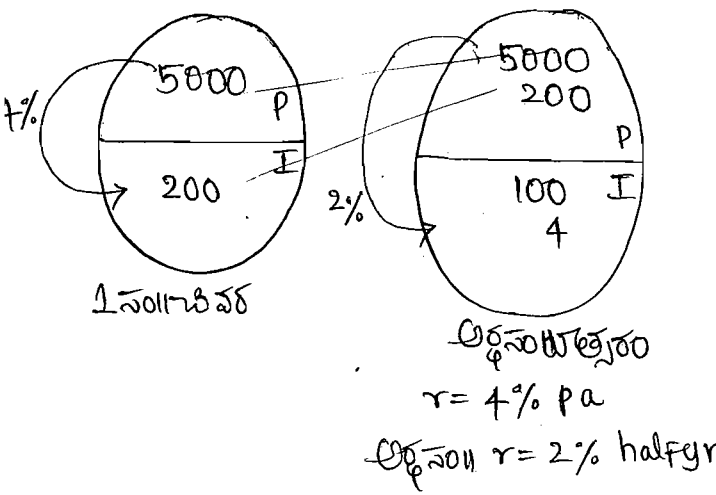 5000 P
7% I
200
1సం॥చివర
5000
200
P
2% 100 I
4
అర్ధసంవత్సరం
r= 4% pa
అర్ధసం॥ r= 2% halfyr